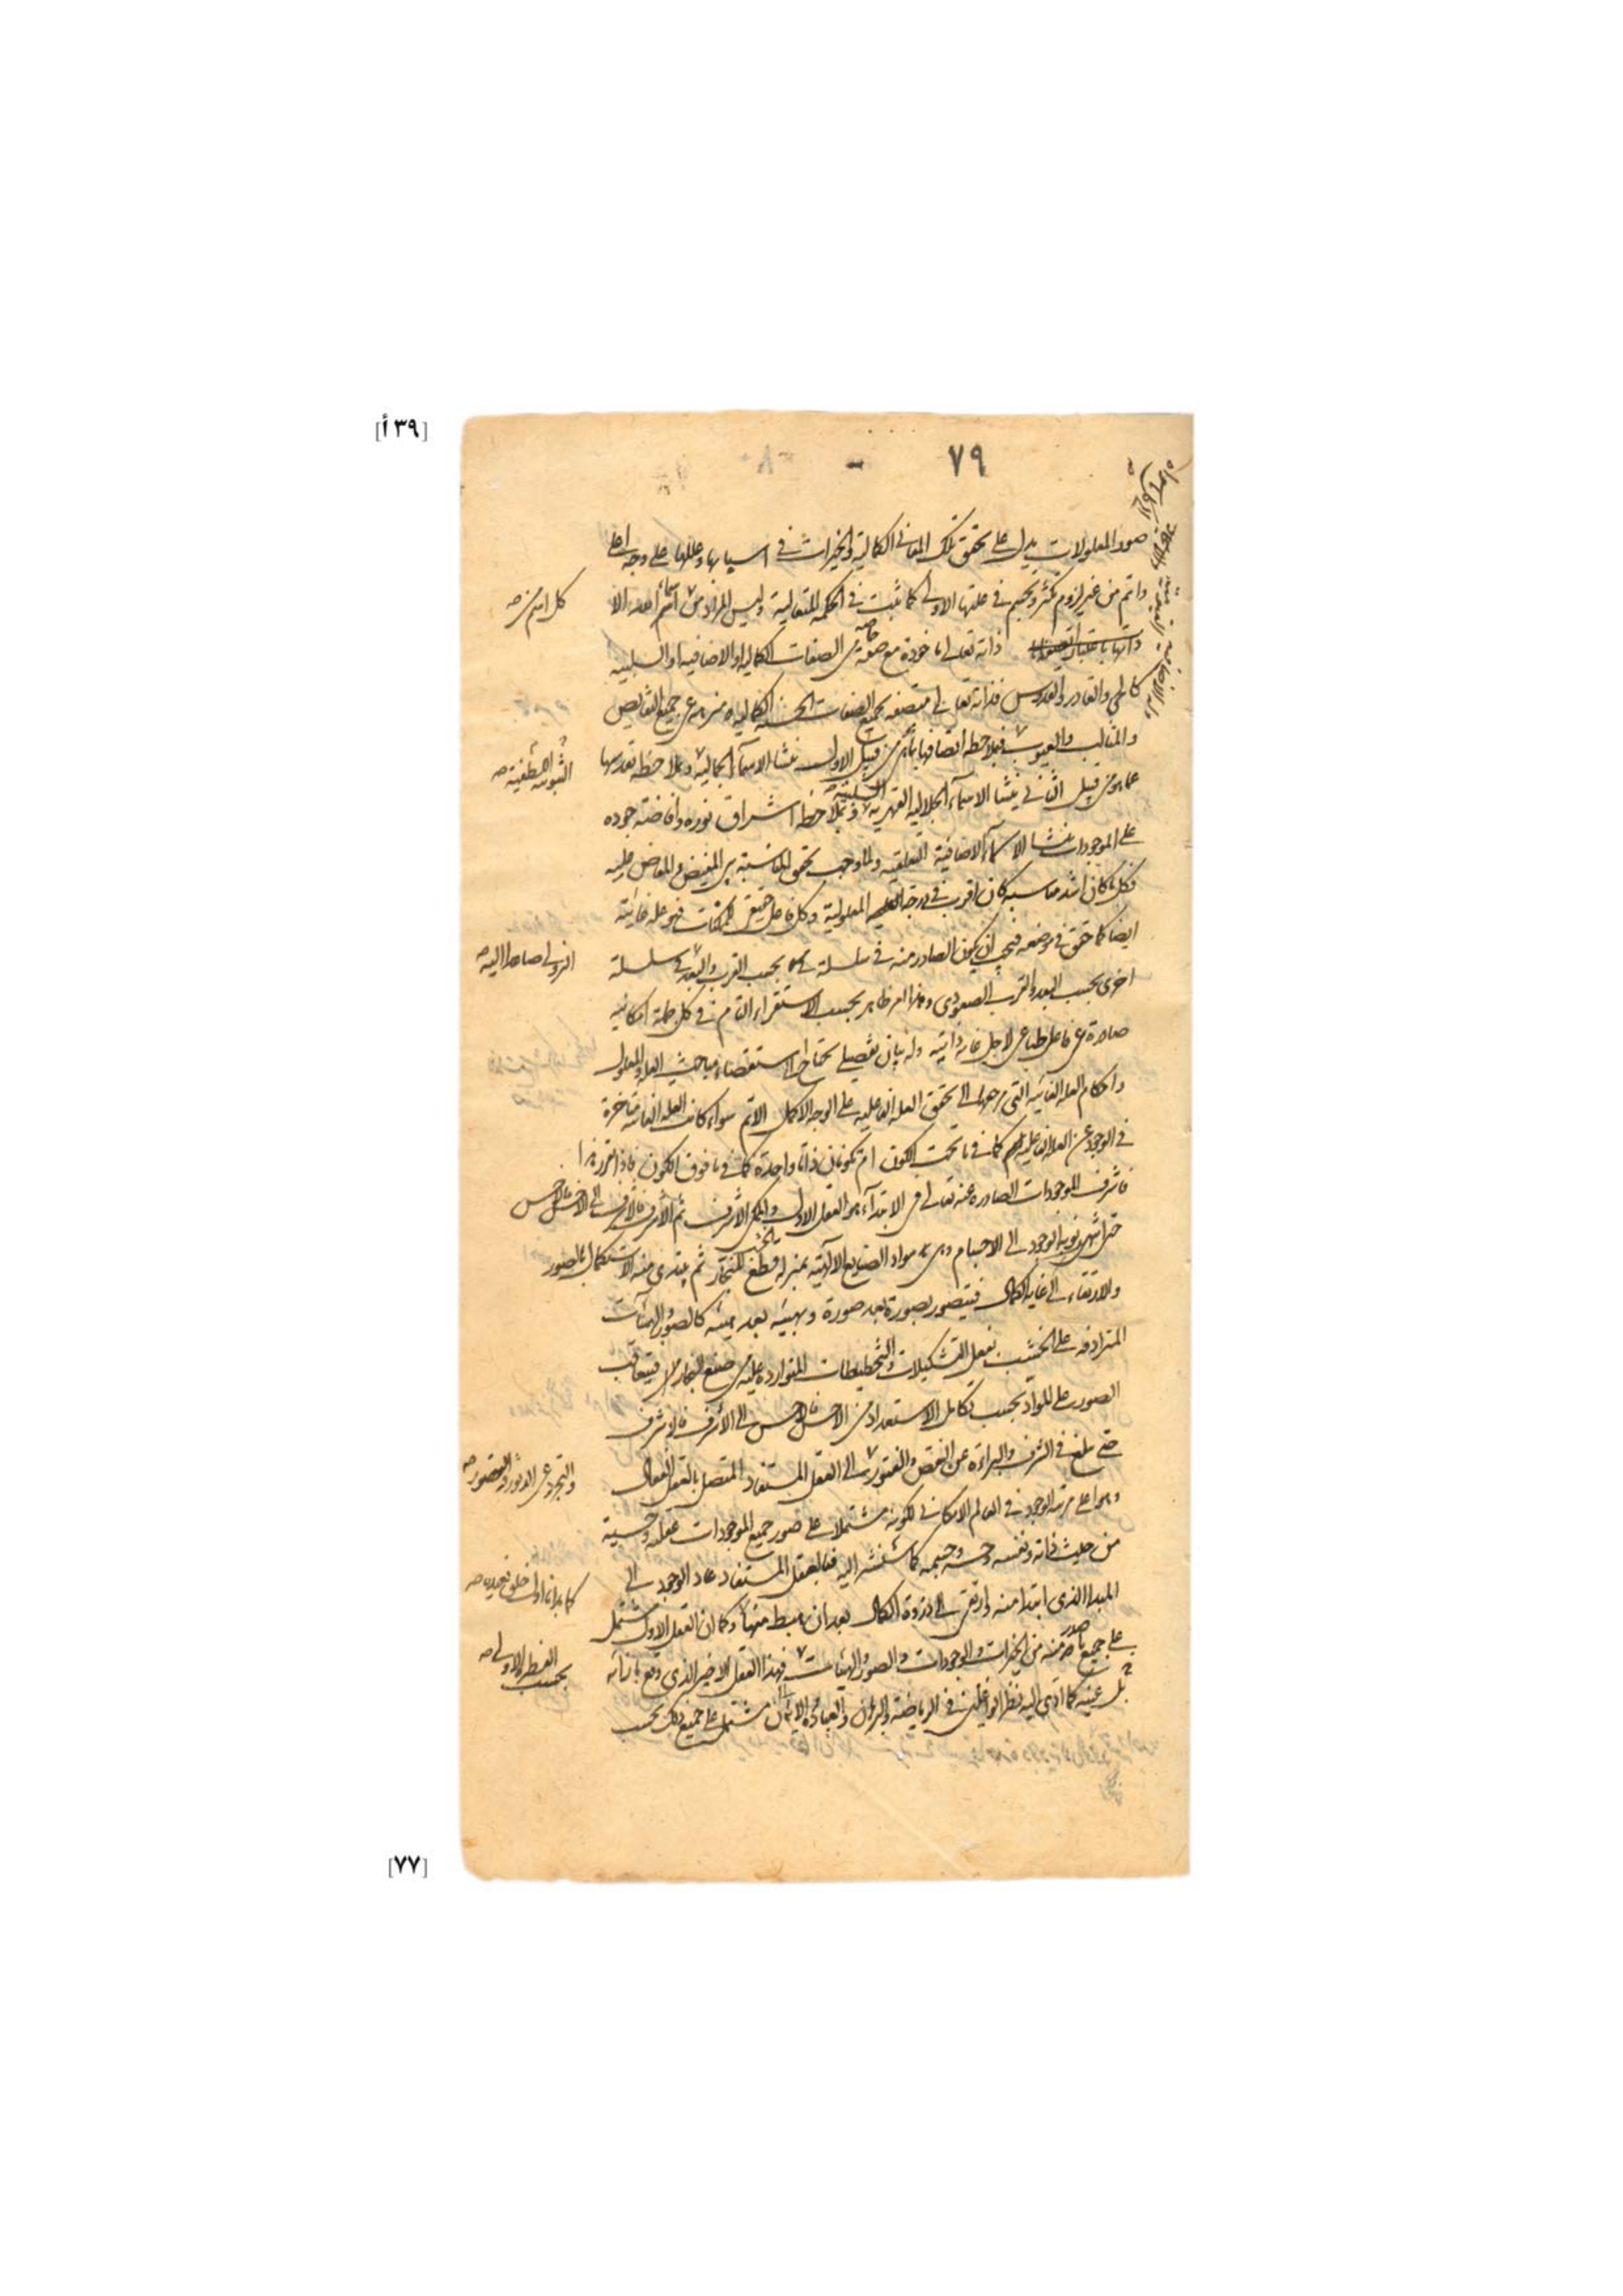 [٣٩ أ]
٧٩
صور المعلولات يدل على تحقق تلك المعاني الكمالية والخيرات في اسبابها وعللها على وجه اعلى
واتم من غير لزوم تكثر وتجسم في علتها الاولى كما ثبت في الحكمة المتعالية وليس المراد من اسماء الله الا
كل اسم من صح
ذاته تعالى ماخوذة مع صفة خاصة من الصفات الكمالية او الاضافية او السلبية
كالحي والقادر والقدوس فذاته تعالى متصفة بجميع الصفات الحسنة الكمالية ومنزهة عن جميع النقايص
والمثالب والعيوب فبملاحظة اتصافها بما هي من قبيل الاول ينشا الاسماء الجمالية وبملاحظة تقدسها
الثبوتية اللطفية صح
عما هو من قبيل الثاني ينشا الاسماء الجلالية القهرية السلبية وبملاحظة اشراق نوره وافاضته جوده
على الموجودات ينشا الاسماء الاضافية التعلقية ولما وجب تحقق المناسبة بين المفيض والمفاض عليه
فكل ما كان اشد مناسبة كان اقرب في درجة المعلولية وكل فاعل حقيقي للممكنات فهو علة غائية
ايضا كما حقق في موضعه فيجب ان يكون الصادر منه في سلسلة بحسب القرب والبعد في سلسلة
النزولي صاعدا اليه صح
اخرى بحسب البعد والقرب الصعودي وهذا امر ظاهر بحسب الاستقراء التام في كل جملة امكانية
صادرة عن فاعل طباعي لاجل غاية ذاتية وله بيان تفصيلي يحتاج الى استقصاء مباحث العلة والمعلول
واحكام العلة الغائية التي مرجعها الى تحقق العلة الفاعلية على الوجه الاكمل الاتم سواء كانت العلة الغائية متاخرة
في الوجود عن العلة الفاعلية كما في ما تحت الكون ام تكونان ذاتا واحدة كما في ما فوق الكون فاذا تقرر هذا
فاشرف الموجودات الصادرة عنه تعالى في الابتداء هو العقل الاول والممكن الاشرف ثم الاشرف فالاشرف الى الاخس فالاخس
حتى انتهى نوبة الوجود الى الاجسام وهي مواد الصنايع الالهية بمنزلة قطع الخشب للنجار ثم يبتدي منه الاستكمال بالصور
والارتقاء الى غاية الكمال فيتصور بصورة بعد صورة وبهيئة بعد هيئة كالصور والهيئات
المترادفة على الخشب بفعل التشكيلات والتخطيطات المتواردة عليه من صنع النجار فيتعاقب
الصور على المواد بحسب تكامل الاستعداد من الاخس فالاخس الى الاشرف فالاشرف
حتى بلغ في الشرف والبراءة عن النقص والفتور الى العقل المستفاد المتصل بالعقل الفعال
والتجرد عن الدثور والقصور صح
وهو اعلى مرتبة الوجود في العالم الامكاني لكونه مشتملا على صور جميع الموجودات عقلية وحسية
من حيث ذاته ونفسه وحسه وجسمه كما سنشير اليه فبالعقل المستفاد عاد الوجود الى
المبدا الذي ابتدا منه وارتقى الى ذروة الكمال بعد ان هبط منها وكما ان العقل الاول مشتمل
كما بدانا اول خلق نعيده صح
على جميع ما صدر منه من الخيرات والوجودات والصور والهيئات فهذا العقل الاخير الذي وقع بازائه
بحسب الفطرة الاولى صح
بل عينه كما ادى اليه نظر الواغلين في الرياضة والبرهان والعبادة والايمان مشتمل على جميع ذلك بحسب
[٧٧]